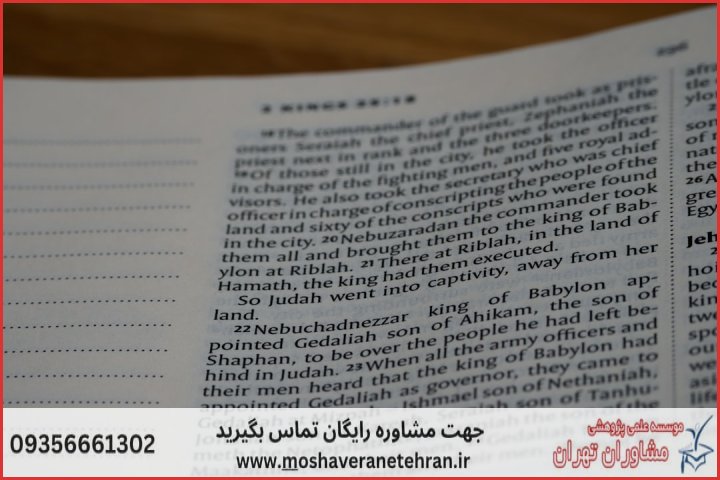 296
2 KINGS 25:18
18The commander of the guard took as pris-
oners Seraiah the chief priest, Zephaniah the
priest next in rank and the three doorkeepers.
19Of those still in the city, he took the officer
in charge of the fighting men, and five royal ad-
visors. He also took the secretary who was chief
officer in charge of conscripting the people of the
land and sixty of the conscripts who were found
in the city. 20Nebuzaradan the commander took
them all and brought them to the king of Bab-
ylon at Riblah. 21There at Riblah, in the land of
Hamath, the king had them executed.
So Judah went into captivity, away from her
land.
22Nebuchadnezzar king of Babylon ap-
pointed Gedaliah son of Ahikam, the son of
Shaphan, to be over the people he had left be-
hind in Judah. 23When all the army officers and
their men heard that the king of Babylon had
appointed Gedaliah as governor, they came to
Gedaliah at Mizpah – Ishmael son of Nethaniah,
Seraiah son of Tanhu-
afra
tle
ylo
son
of
nat
the
26A
gre
Egy
Jeh
hoi
bec
kin
two
spo
جهت مشاوره رایگان تماس بگیرید
09356661302
www.moshaveranetehran.ir
موسسه علمی پژوهشی
مشاوران تهران